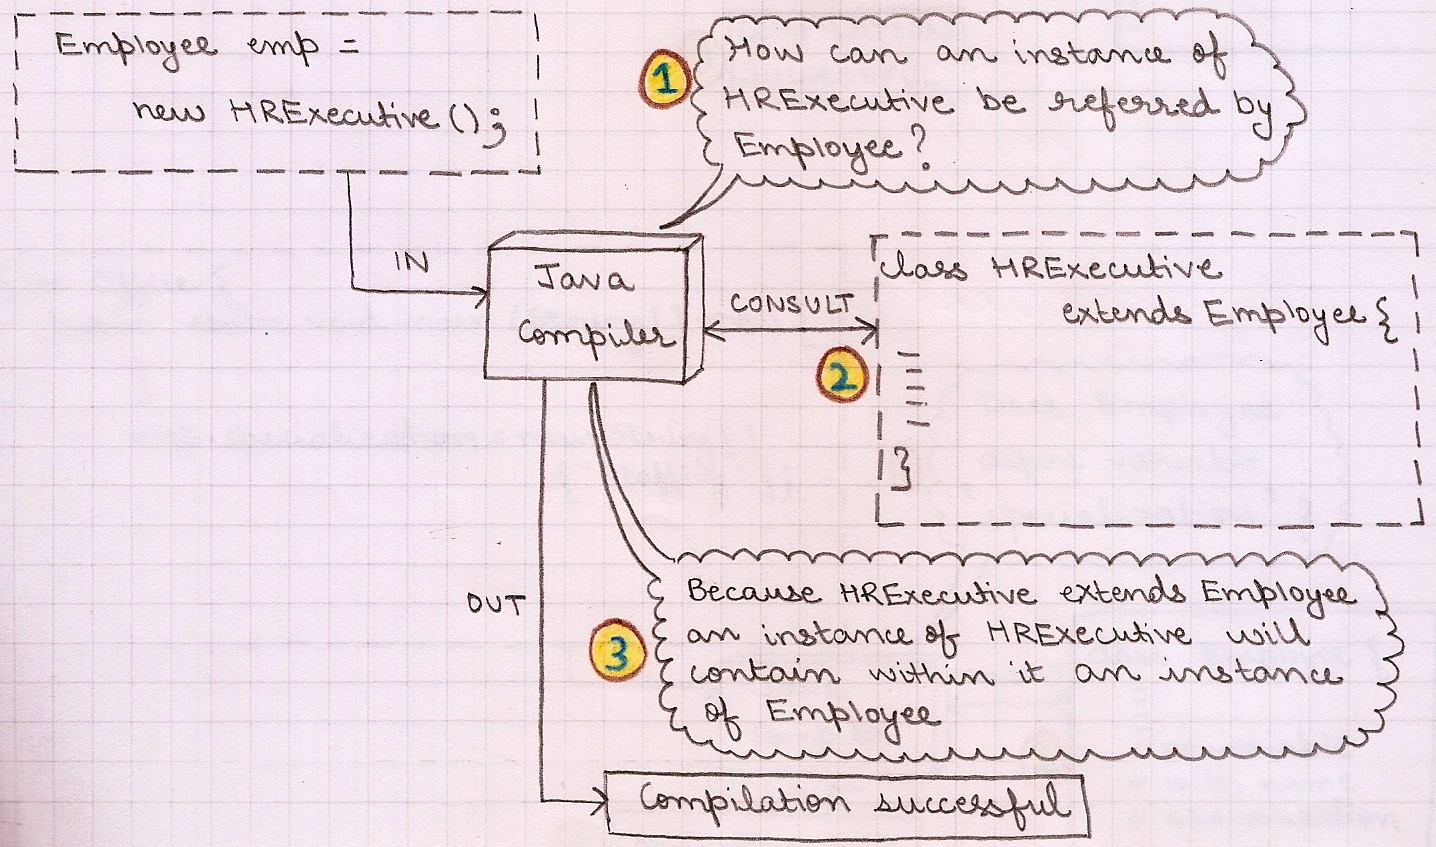 Employee emp =
new HRExecutive();
1
How can an instance of
HRExecutive be referred by
Employee?
IN
Java
Compiler
CONSULT
2
class HRExecutive
extends Employee {
}
OUT
3
Because HRExecutive extends Employee
an instance of HRExecutive will
contain within it an instance
of Employee
Compilation successful